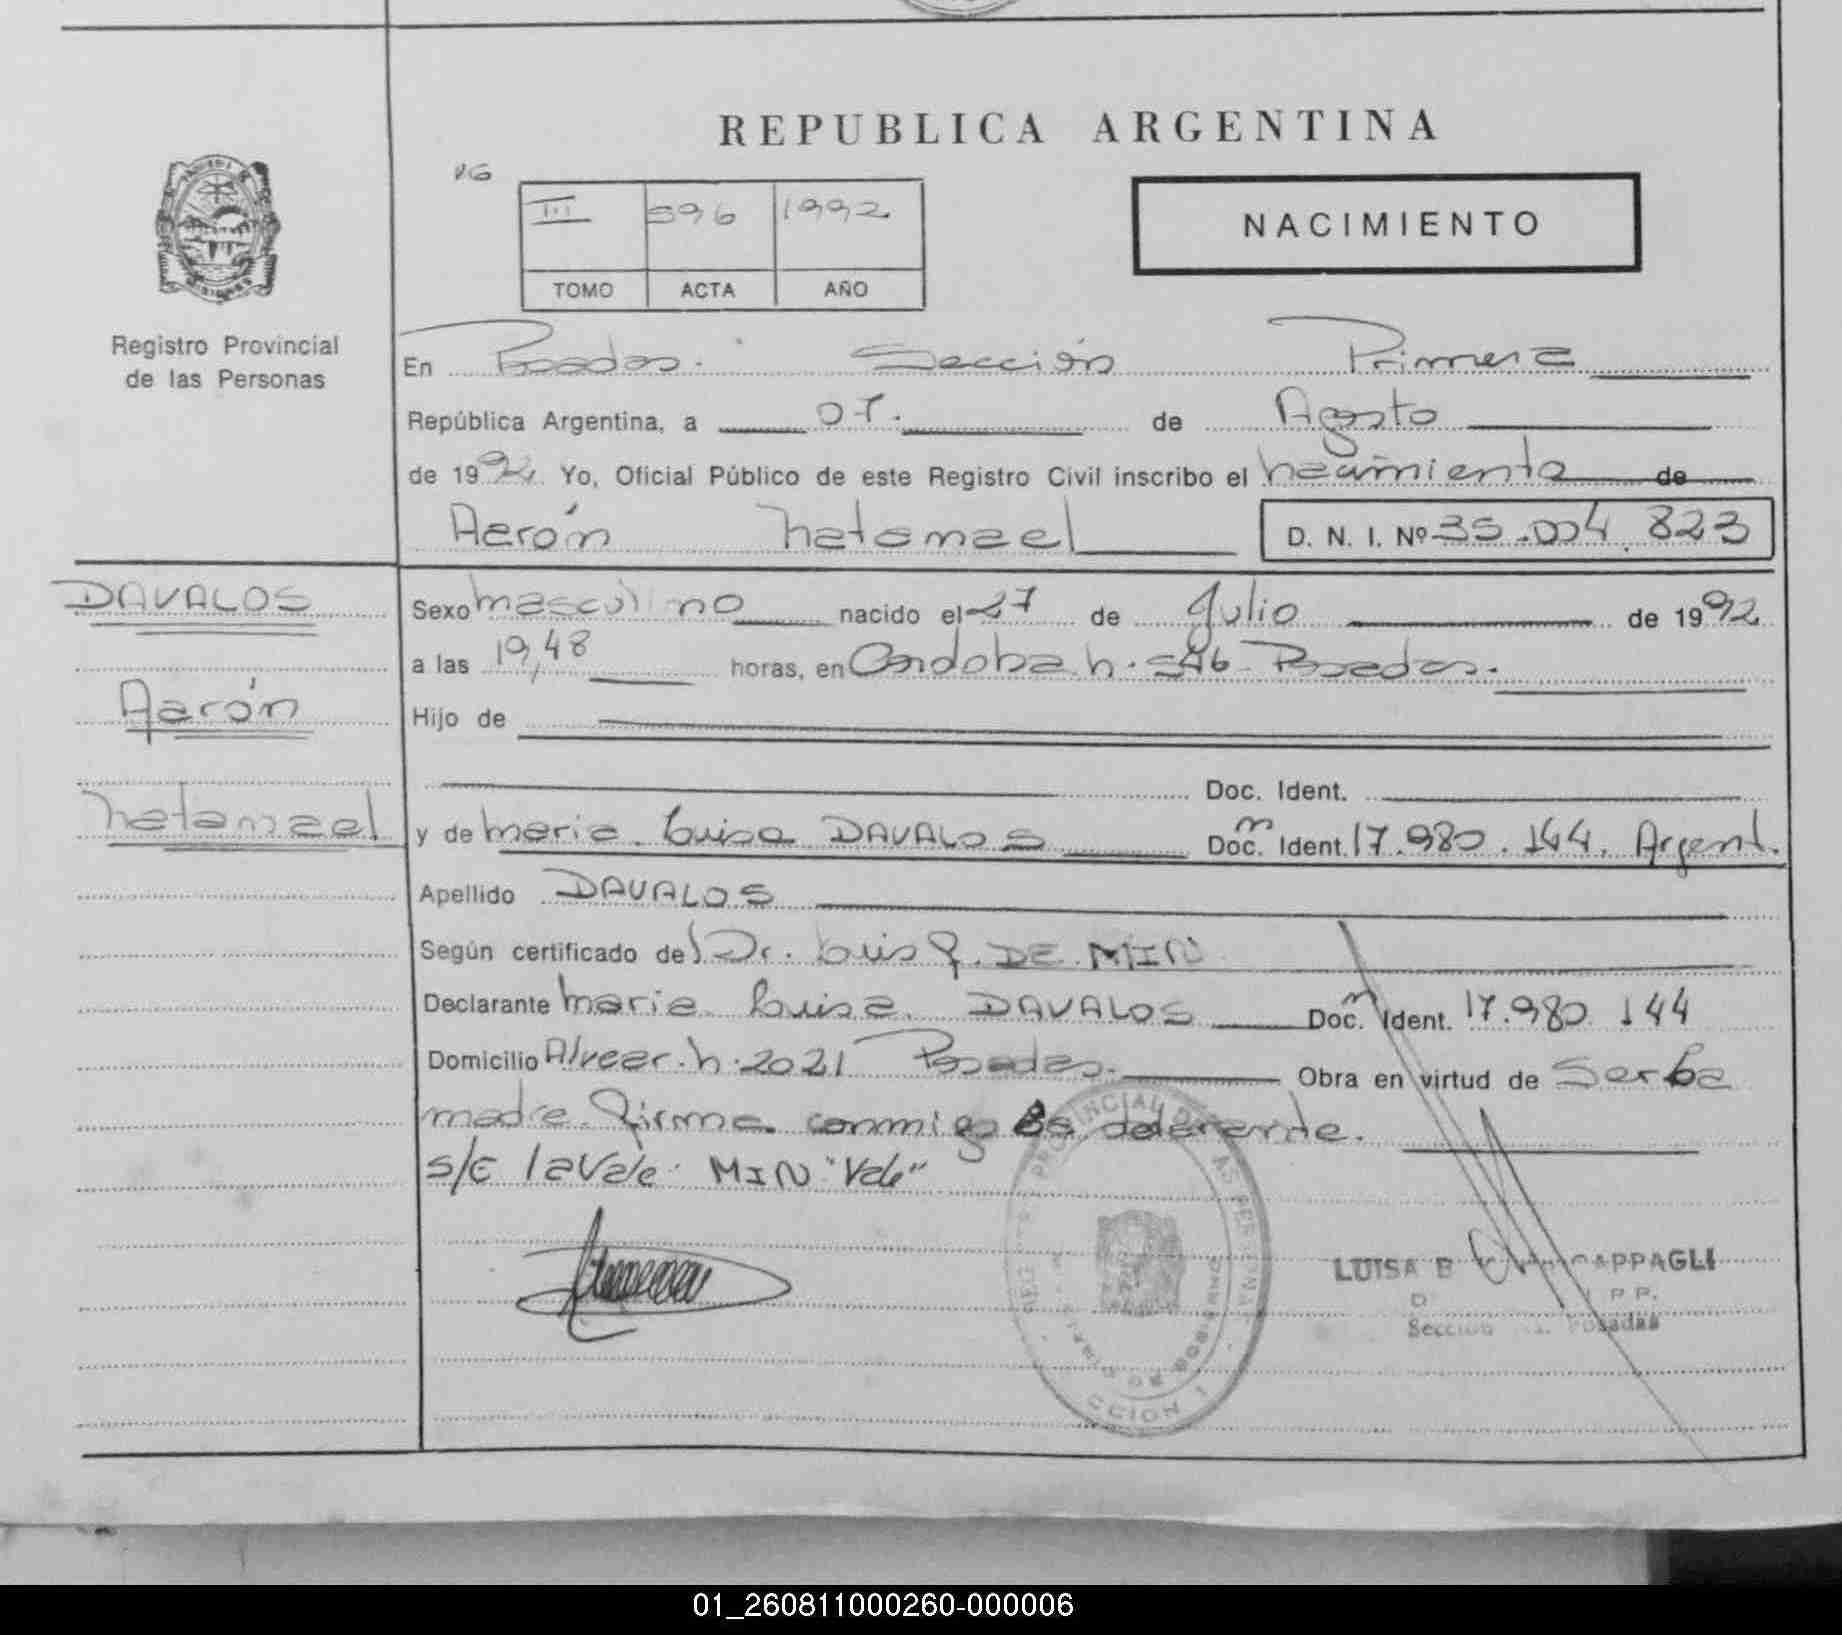 REPUBLICA ARGENTINA
III 596 1992
TOMO ACTA AÑO
NACIMIENTO
Registro Provincial
de las Personas
En Posadas. Sección Primera
República Argentina, a 07. de Agosto
de 1992 Yo, Oficial Público de este Registro Civil inscribo el nacimiento de
Aarón Natanael D. N. I. Nº 35.004.823
DAVALOS
Aarón
Natanael
Sexo masculino nacido el 27 de Julio de 1992
a las 19,48 horas, en Cordoba N. 546 Posadas.
Hijo de
Doc. Ident.
y de Maria Luisa DAVALOS Doc. Ident. 17.980.144. Argent.
Apellido DAVALOS
Según certificado de Dr. Luis DE MIN
Declarante Maria Luisa DAVALOS Doc. Ident. 17.980 144
Domicilio Alvear N. 2021 Posadas. Obra en virtud de Ser ba
madre firma conmigo declarante.
MIN "Vale"
LUISA CAPPAGLI
Posadas
01_260811000260-000006